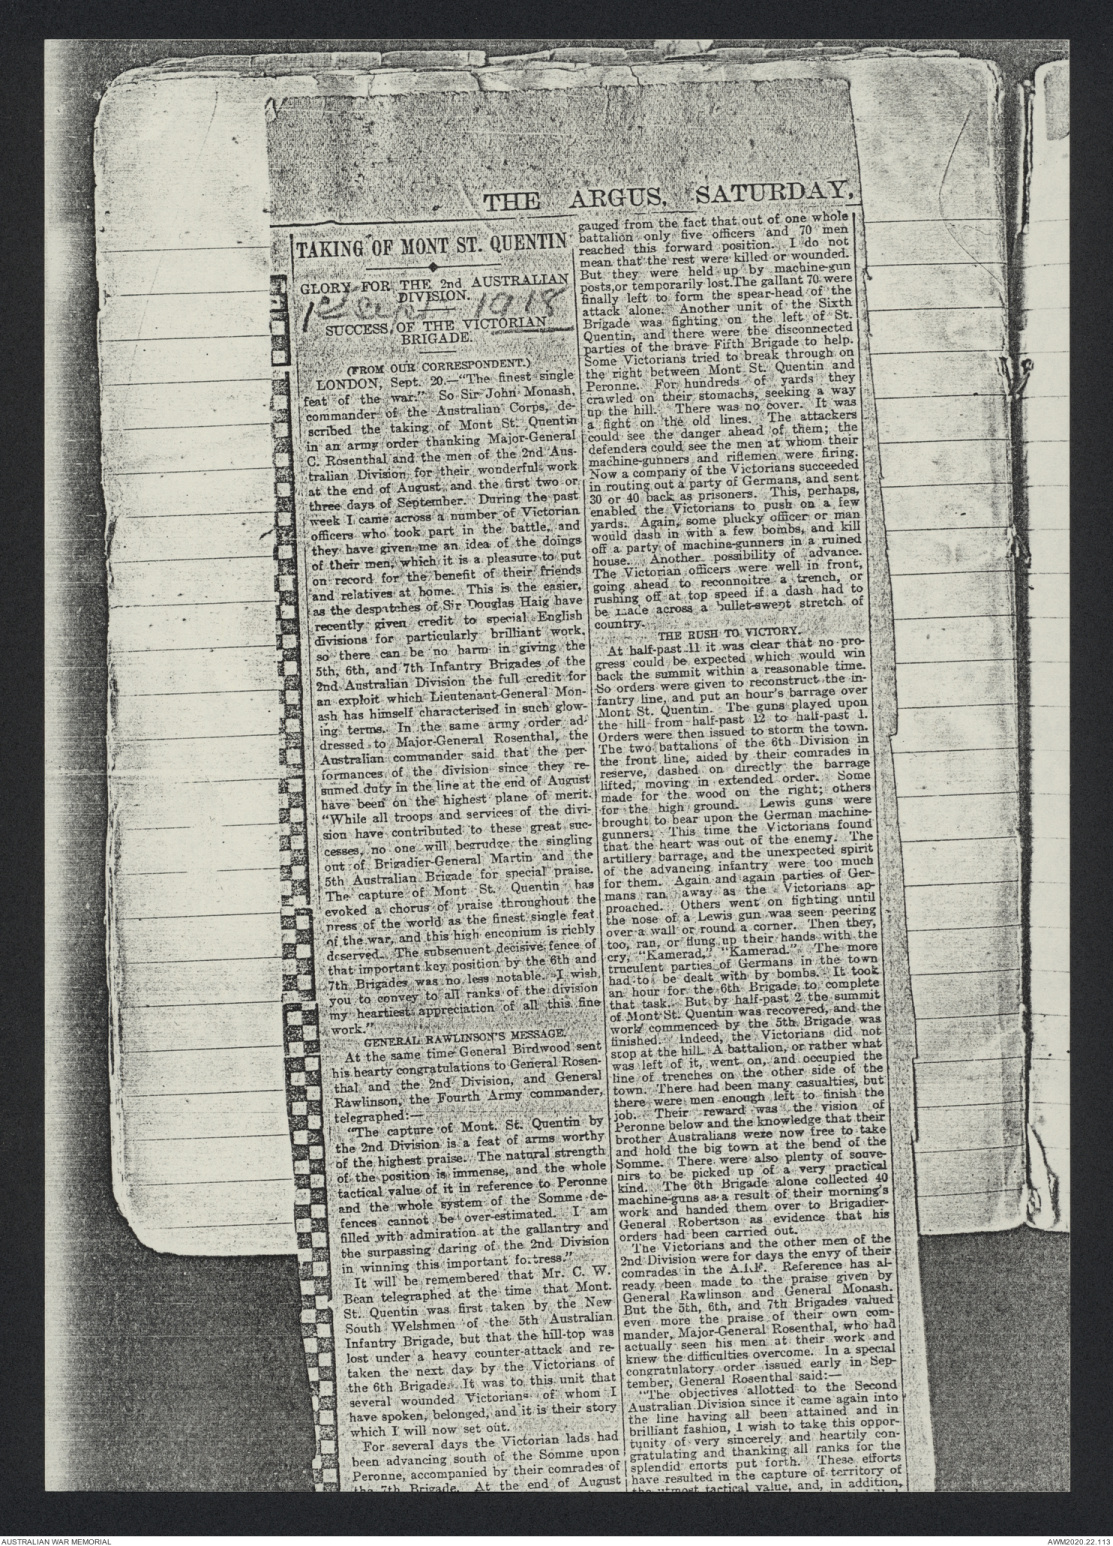 THE ARGUS, SATURDAY,
TAKING OF MONT ST. QUENTIN
GLORY FOR THE 2nd AUSTRALIAN
DIVISION.
1 Sept 1918
SUCCESS OF THE VICTORIAN
BRIGADE.
(FROM OUR CORRESPONDENT.)
LONDON, Sept. 20.—"The finest single
feat of the war." So Sir John Monash,
commander of the Australian Corps, de-
scribed the taking of Mont St. Quentin
in an army order thanking Major-General
C. Rosenthal and the men of the 2nd Aus-
tralian Division for their wonderful work
at the end of August and the first two or
three days of September. During the past
week I came across a number of Victorian
officers who took part in the battle, and
they have given me an idea of the doings
of their men, which it is a pleasure to put
on record for the benefit of their friends
and relatives at home. This is the easier,
as the despatches of Sir Douglas Haig have
recently given credit to special English
divisions for particularly brilliant work,
so there can be no harm in giving the
5th, 6th, and 7th Infantry Brigades of the
2nd Australian Division the full credit for
an exploit which Lieutenant-General Mon-
ash has himself characterised in such glow-
ing terms. In the same army order ad-
dressed to Major-General Rosenthal, the
Australian commander said that the per-
formances of the division since they re-
sumed duty in the line at the end of August
have been on the highest plane of merit.
"While all troops and services of the divi-
sion have contributed to these great suc-
cesses, no one will begrudge the singling
out of Brigadier-General Martin and the
5th Australian Brigade for special praise.
The capture of Mont St. Quentin has
evoked a chorus of praise throughout the
press of the world as the finest single feat
of the war, and this high enconium is richly
deserved. The subsequent decisive fence of
that important key position by the 6th and
7th Brigades was no less notable. I wish
you to convey to all ranks of the division
my heartiest appreciation of all this fine
work."
GENERAL RAWLINSON'S MESSAGE.
At the same time General Birdwood sent
his hearty congratulations to General Rosen-
thal and the 2nd Division, and General
Rawlinson, the Fourth Army commander,
telegraphed:—
"The capture of Mont. St. Quentin by
the 2nd Division is a feat of arms worthy
of the highest praise. The natural strength
of the position is immense, and the whole
tactical value of it in reference to Peronne
and the whole system of the Somme de-
fences cannot be over-estimated. I am
filled with admiration at the gallantry and
the surpassing daring of the 2nd Division
in winning this important fortress."
It will be remembered that Mr. C. W.
Bean telegraphed at the time that Mont.
St. Quentin was first taken by the New
South Welshmen of the 5th Australian
Infantry Brigade, but that the hill-top was
lost under a heavy counter-attack and re-
taken the next day by the Victorians of
the 6th Brigade. It was to this unit that
several wounded Victorians of whom I
have spoken, belonged, and it is their story
which I will now set out.
For several days the Victorian lads had
been advancing south of the Somme upon
Peronne, accompanied by their comrades of
the 7th Brigade. At the end of August
gauged from the fact that out of one whole
battalion only five officers and 70 men
reached this forward position. I do not
mean that the rest were killed or wounded.
But they were held up by machine-gun
posts, or temporarily lost. The gallant 70 were
finally left to form the spear-head of the
attack alone. Another unit of the Sixth
Brigade was fighting on the left of St.
Quentin, and there were the disconnected
parties of the brave Fifth Brigade to help.
Some Victorians tried to break through on
the right between Mont St. Quentin and
Peronne. For hundreds of yards they
crawled on their stomachs, seeking a way
up the hill. There was no cover. It was
a fight on the old lines. The attackers
could see the danger ahead of them; the
defenders could see the men at whom their
machine-gunners and riflemen were firing.
Now a company of the Victorians succeeded
in routing out a party of Germans, and sent
30 or 40 back as prisoners. This, perhaps,
enabled the Victorians to push on a few
yards. Again, some plucky officer or man
would dash in with a few bombs, and kill
off a party of machine-gunners in a ruined
house. Another possibility of advance.
The Victorian officers were well in front,
going ahead to reconnoitre a trench, or
rushing off at top speed if a dash had to
be made across a bullet-swept stretch of
country.
THE RUSH TO VICTORY.
At half-past 11 it was clear that no pro-
gress could be expected which would win
back the summit within a reasonable time.
So orders were given to reconstruct the in-
fantry line, and put an hour's barrage over
Mont St. Quentin. The guns played upon
the hill from half-past 12 to half-past 1.
Orders were then issued to storm the town.
The two battalions of the 6th Division in
the front line, aided by their comrades in
reserve, dashed on directly the barrage
lifted, moving in extended order. Some
made for the wood on the right; others
for the high ground. Lewis guns were
brought to bear upon the German machine-
gunners. This time the Victorians found
that the heart was out of the enemy. The
artillery barrage, and the unexpected spirit
of the advancing infantry were too much
for them. Again and again parties of Ger-
mans ran away as the Victorians ap-
proached. Others went on fighting until
the nose of a Lewis gun was seen peering
over a wall or round a corner. Then they,
too, ran, or flung up their hands with the
cry, "Kamerad," "Kamerad." The more
truculent parties of Germans in the town
had to be dealt with by bombs. It took
an hour for the 6th Brigade to complete
that task. But by half-past 2 the summit
of Mont St. Quentin was recovered, and the
work commenced by the 5th Brigade was
finished. Indeed, the Victorians did not
stop at the hill. A battalion, or rather what
was left of it, went on, and occupied the
line of trenches on the other side of the
town. There had been many casualties, but
there were men enough left to finish the
job. Their reward was the vision of
Peronne below and the knowledge that their
brother Australians were now free to take
and hold the big town at the bend of the
Somme. There were also plenty of souve-
nirs to be picked up of a very practical
kind. The 6th Brigade alone collected 40
machine-guns as a result of their morning's
work and handed them over to Brigadier-
General Robertson as evidence that his
orders had been carried out.
The Victorians and the other men of the
2nd Division were for days the envy of their
comrades in the A.I.F. Reference has al-
ready been made to the praise given by
General Rawlinson and General Monash.
But the 5th, 6th, and 7th Brigades valued
even more the praise of their own com-
mander, Major-General Rosenthal, who had
actually seen his men at their work and
knew the difficulties overcome. In a special
congratulatory order issued early in Sep-
tember, General Rosenthal said:—
"The objectives allotted to the Second
Australian Division since it came again into
the line having all been attained and in
brilliant fashion, I wish to take this oppor-
tunity of very sincerely and heartily con-
gratulating and thanking all ranks for the
splendid efforts put forth. These efforts
have resulted in the capture of territory of
the utmost tactical value, and, in addition,
AUSTRALIAN WAR MEMORIAL
AWM2020.22.113